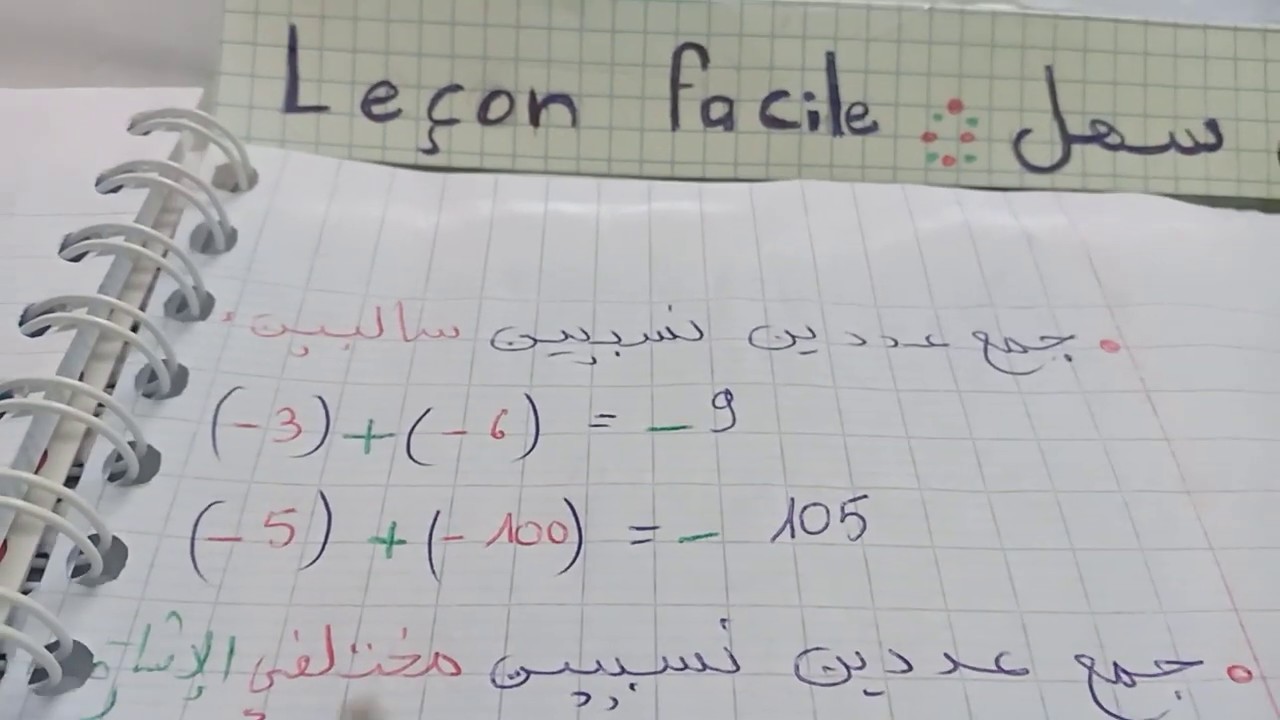 Leçon facile سهل
جمع عددين نسبيين سالبين
(-3) + (-6) = - 9
(-5) + (-100) = - 105
جمع عددين نسبيين مختلفي